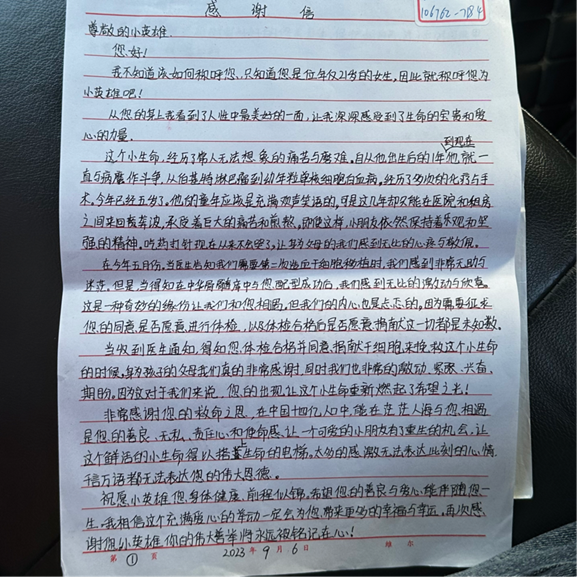 感谢信
106762-784
尊敬的小英雄
您好!
我不知道该如何称呼您,只知道您是位年仅21岁的女生,因此就称呼您为
小英雄吧!
从您的身上我看到了人性中最美好的一面,让我深深感受到了生命的宝贵和爱
心的力量.
到现在
这个小生命,经历了常人无法想象的痛苦与磨难,自从他出生后的1年他,就一
直与病魔作斗争,从伯基特淋巴瘤到幼年粒单核细胞白血病,经历了多次的化疗与手
术,今年已经五岁了,他的童年应该是充满欢声笑语的,可是这几年却只能在医院和租房
之间来回奔波,承受着巨大的痛苦和煎熬,即使这样,小朋友依然保持着乐观和坚
强的精神,吃药打针现在从来不会哭了,让身为父母的我们感到无比的心疼与敬佩.
在今年五月份,当医生告知我们需要第二次造血干细胞移植时,我们感到非常无助与
迷茫,但是,当得知在中华骨髓库中与您配型成功后,我们感到无比的激动与欣喜,
这是一种奇妙的缘份让我们和您相遇,但我们的内心也是忐忑的,因为需要征求
您的同意,是否愿意进行体检,以及体检合格后是否愿意捐献这一切都是未知数.
当收到医生通知,得知您体检合格并同意捐献干细胞来挽救这个小生命
的时候,身为孩子的父母我们真的非常感谢,同时我们也非常的激动、紧张、兴奋、
期盼,因为这对于我们来说,您的出现让这个小生命重新燃起了希望之光!
非常感谢您的救命之恩,在中国十四亿人口中,能在茫茫人海与您相遇
是您的善良、无私、责任心和使命感,让一个可爱的小朋友有了重生的机会,让
这个鲜活的小生命得以搭上生命的电梯.太多的感激无法表达此刻的心情,
千言万语都无法表达您的伟大恩德.
祝愿小英雄您身体健康,前程似锦,希望您的善良与爱心能伴随您一
生,我相信这个充满爱心的举动一定会为您带来更多的幸福与幸运,再次感
谢您小英雄,你的伟大善举将永远被铭记在心!
第 ① 页
2023年9月6日